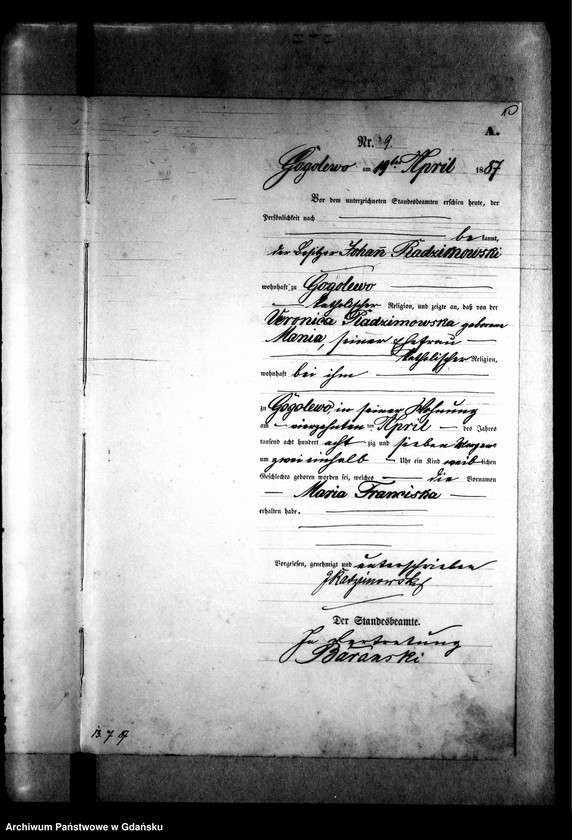 A.
Nr. 9.
Gogolewo am 19ten April 1887
Vor dem unterzeichneten Standesbeamten erschien heute, der
Persönlichkeit nach
bekannt,
der Besitzer Johann Radzimowski
wohnhaft zu Gogolewo
katholischer Religion, und zeigte an, daß von der
Veronica Radzimowska geborene
Mania, seiner Ehefrau
katholischer Religion,
wohnhaft bei ihm
zu Gogolewo, in seiner Wohnung
am vierzehnten ten April des Jahres
tausend acht hundert achtzig und sieben Morgens
um zwei einhalb Uhr ein Kind weiblichen
Geschlechts geboren worden sei, welches die Vornamen
Maria Franciska
erhalten habe.
Vorgelesen, genehmigt und unterschrieben
J Radzimowski
Der Standesbeamte.
In Vertretung
Baranski
13 7 
Archiwum Państwowe w Gdańsku